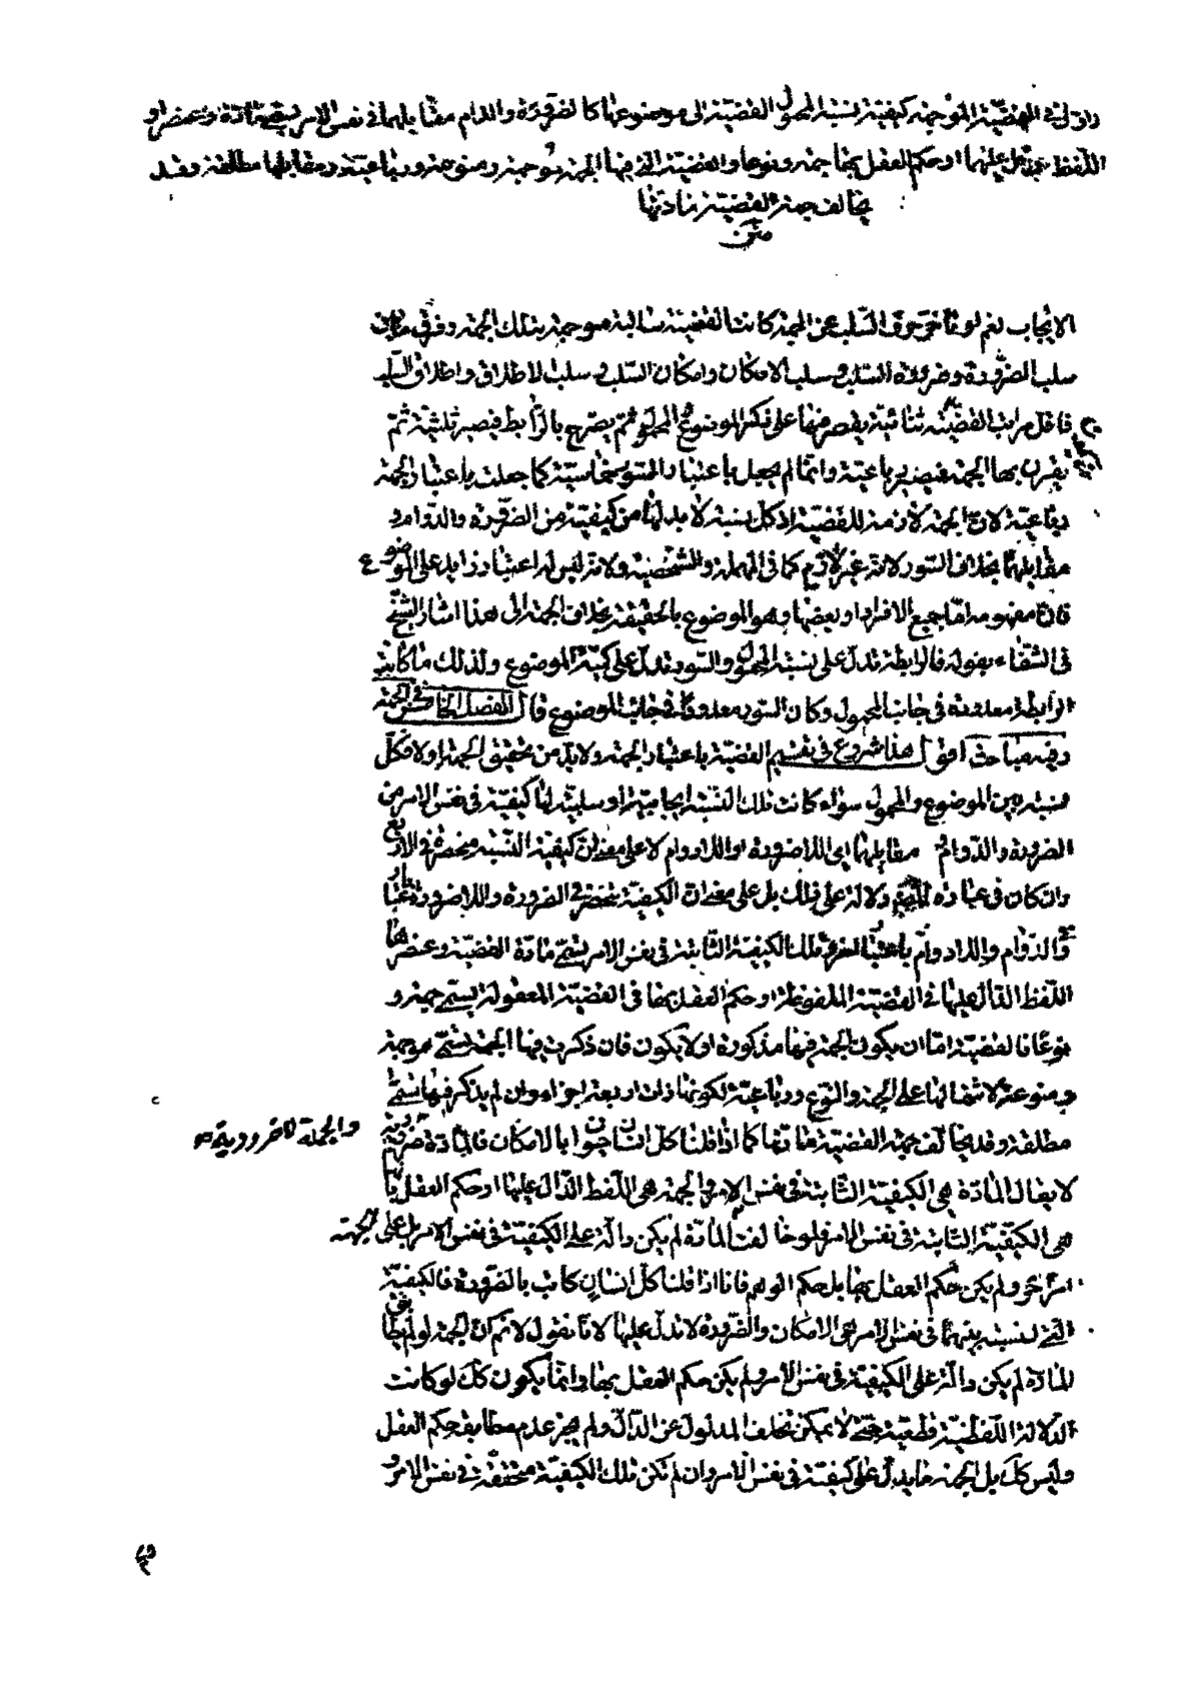 الاول في القضية الموجهة كيفية نسبة المحمول القضية الى موضوعها كالضرورة والدوام مقابلهما في نفس الامر يسمى مادة وعنصرا و
اللفظ الدال عليها او حكم العقل بها جهة ونوعا والقضية التي فيها الجهة موجهة ومنوعة ورباعية ومقابلها مطلقة وقد
يخالف جهة القضية مادتها
متن
الايجاب نعم لو تأخر حرف السلب عن الجهة كانت القضية سالبة موجهة بتلك الجهة وفرق ما بين
سلب الضرورة وضرورة السلب وسلب الامكان وامكان السلب وسلب الاطلاق واطلاق السلب
فاقل مراتب القضية ثنائية يقصر فيها على ذكر الموضوع والمحمول ثم يصرح بالرابط فيصير ثلثية ثم
يقرن بها الجهة فيصير رباعية وانما لم يجعل باعتبار السور خماسية كما جعلت باعتبار الجهة
رباعية لان الجهة لازمة للقضية اذ كل نسبة لا بد لها من كيفية من الضرورة والدوام و
مقابلهما بخلاف السور لانه غير لازم كما في المهملة والشخصية ولانه ليس له اعتبار زايد على الموضوع
فان مفهومه اما جميع الافراد او بعضها وهو الموضوع بالحقيقة بخلاف الجهة الى هذا اشار الشيخ
في الشفاء بقوله فالرابطة تدل على نسبة المحمول والسور تدل على كمية الموضوع ولذلك ما كانت
الرابطة معدودة في جانب المحمول وكان السور معدودا في جانب الموضوع قال الفصل الخامس في الجهة
وفيه مباحث اقول هذا شروع في تقسيم القضية باعتبار الجهة ولا بد من تحقيق الجهة اولا فكل
نسبة بين الموضوع والمحمول سواء كانت تلك النسبة ايجابية او سلبية لها كيفية في نفس الامر من
الضرورة والدوام و مقابلهما اى اللاضرورة او اللادوام لا على معنى ان كيفية النسبة منحصرة في الاربع
وان كان في عبارة المصنف دلالة على ذلك بل على معنى ان الكيفية تنحصر في الضرورة واللاضرورة باعتبار
والدوام واللادوام باعتبار اخر وتلك الكيفية الثابتة في نفس الامر يسمى مادة القضية وعنصرها
اللفظ الدال عليها في القضية الملفوظة او حكم العقل بها في القضية المعقولة يسمى جهة و
نوعا فالقضية اما ان يكون الجهة فيها مذكورة او لا يكون فان ذكرت فيها الجهة يسمى موجهة
ومنوعة لاشتمالها على الجهة والنوع ورباعية لكونها ذات اربعة اجزاء وان لم يذكر فيها تسمى
مطلقة وقد يخالف جهة القضية مادتها كما اذا قلنا كل انسان حيوان بالامكان فالمادة ضرورية
والجهة لاضرورية
لا يقال المادة هي الكيفية الثابتة في نفس الامر والجهة هي اللفظ الدال عليها او حكم العقل بها
هي الكيفية الثابتة في نفس الامر فلو خالفت المادة لم يكن دالة على الكيفية في نفس الامر بل على
امر اخر ولم يكن حكم العقل بها بل حكم الوهم فانا اذا قلنا كل انسان كاتب بالضرورة فالكيفية
التي لنسبة بينهما في نفس الامر هي الامكان والضرورة لا تدل عليها لانا نقول لا نم ان الجهة لو لم يطابق
المادة لم يكن دالة على الكيفية في نفس الامر ولم يكن حكم العقل بها وانما يكون كك لو كانت
الدلالة اللفظية قطعية حتى لا يمكن تخلف المدلول عن الدال ولم يجز عدم مطابقة حكم العقل
وليس كك بل الجهة ما يدل على كيفية في نفس الامر وان لم تكن تلك الكيفية متحققة في نفس الامر و